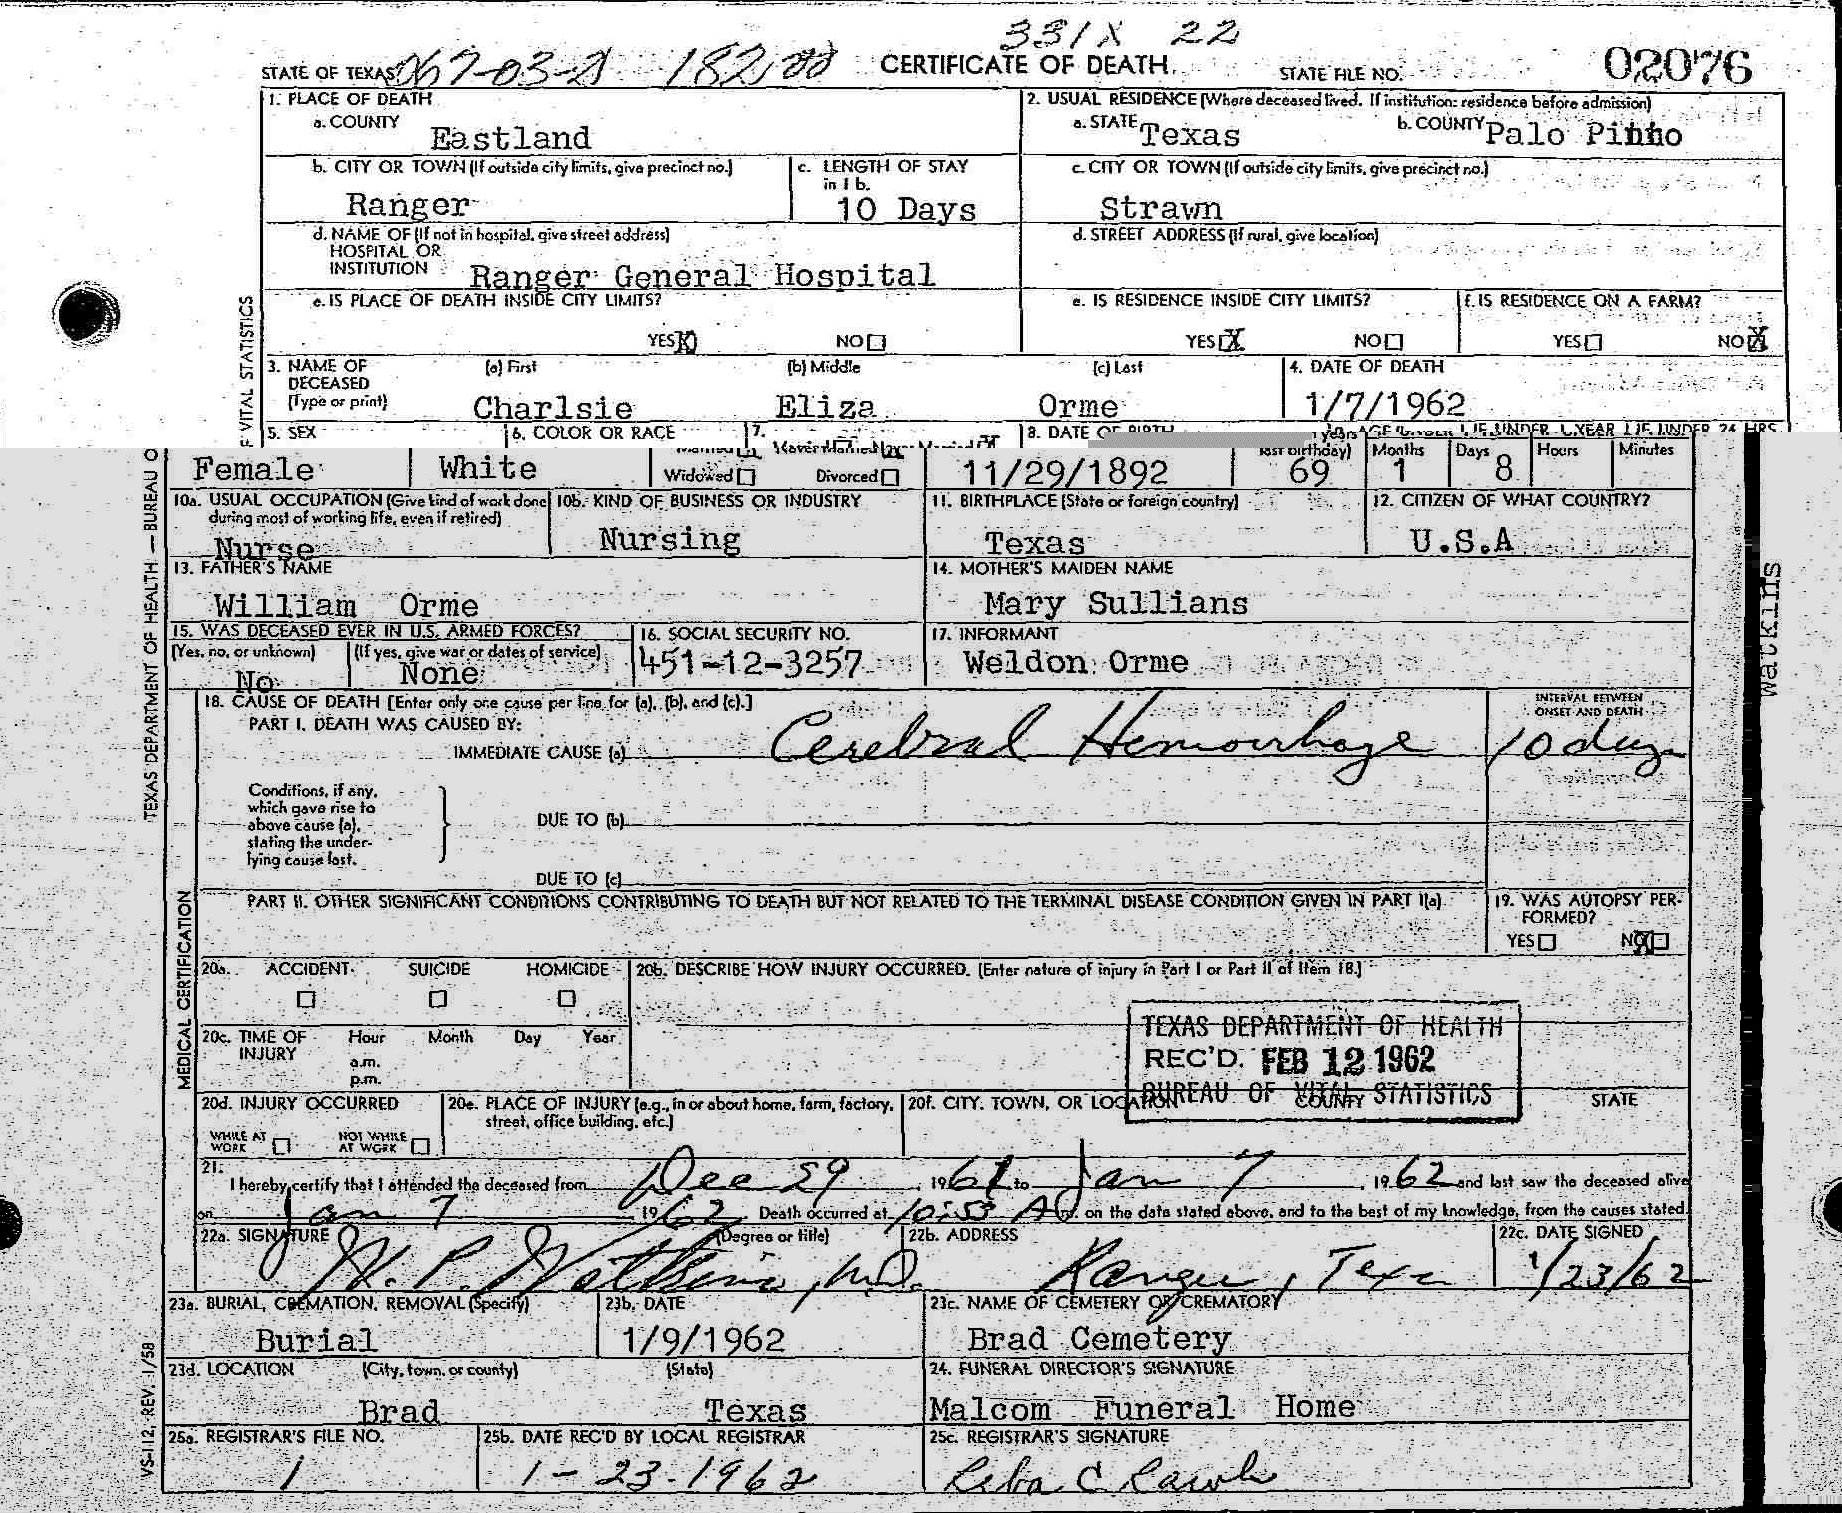 331X 22
STATE OF TEXAS 067-03-2 182 00 CERTIFICATE OF DEATH STATE FILE NO. 02076
1. PLACE OF DEATH
a. COUNTY Eastland
2. USUAL RESIDENCE (Where deceased lived. If institution: residence before admission)
a. STATE Texas b. COUNTY Palo Pinho
b. CITY OR TOWN (If outside city limits, give precinct no.) Ranger
c. LENGTH OF STAY in 1 b. 10 Days
c. CITY OR TOWN (If outside city limits, give precinct no.) Strawn
d. NAME OF (If not in hospital, give street address)
HOSPITAL OR
INSTITUTION Ranger General Hospital
d. STREET ADDRESS (If rural, give location)
e. IS PLACE OF DEATH INSIDE CITY LIMITS?
YES X NO
e. IS RESIDENCE INSIDE CITY LIMITS?
YES X NO
f. IS RESIDENCE ON A FARM?
YES NO X
3. NAME OF DECEASED (Type or print)
(a) First (b) Middle (c) Last
Charlsie Eliza Orme
4. DATE OF DEATH
1/7/1962
5. SEX
Female
6. COLOR OR RACE
White
7. Married Never Married X
Widowed Divorced
8. DATE OF BIRTH
11/29/1892
last birthday) 69
IF UNDER 1 YEAR IF UNDER 24 HRS
Months 1 Days 8 Hours Minutes
10a. USUAL OCCUPATION (Give kind of work done during most of working life, even if retired)
Nurse
10b. KIND OF BUSINESS OR INDUSTRY
Nursing
11. BIRTHPLACE (State or foreign country)
Texas
12. CITIZEN OF WHAT COUNTRY?
U.S.A
13. FATHER'S NAME
William Orme
14. MOTHER'S MAIDEN NAME
Mary Sullians
15. WAS DECEASED EVER IN U.S. ARMED FORCES?
(Yes, no, or unknown) (If yes, give war or dates of service)
No None
16. SOCIAL SECURITY NO.
451-12-3257
17. INFORMANT
Weldon Orme
18. CAUSE OF DEATH [Enter only one cause per line for (a), (b), and (c).]
PART I. DEATH WAS CAUSED BY:
IMMEDIATE CAUSE (a) Cerebral Hemourhage
INTERVAL BETWEEN ONSET AND DEATH
10 days
Conditions, if any,
which gave rise to
above cause (a),
stating the under-
lying cause last.
DUE TO (b)
DUE TO (c)
PART II. OTHER SIGNIFICANT CONDITIONS CONTRIBUTING TO DEATH BUT NOT RELATED TO THE TERMINAL DISEASE CONDITION GIVEN IN PART I(a)
19. WAS AUTOPSY PER-
FORMED?
YES NO X
20a. ACCIDENT SUICIDE HOMICIDE
20b. DESCRIBE HOW INJURY OCCURRED. (Enter nature of injury in Part I or Part II of Item 18.)
20c. TIME OF INJURY Hour Month Day Year
a.m.
p.m.
TEXAS DEPARTMENT OF HEALTH
REC'D. FEB 12 1962
BUREAU OF VITAL STATISTICS
20d. INJURY OCCURRED
WHILE AT WORK NOT WHILE AT WORK
20e. PLACE OF INJURY (e.g., in or about home, farm, factory, street, office building, etc.)
20f. CITY, TOWN, OR LOCATION COUNTY STATE
21.
I hereby certify that I attended the deceased from Dec 29, 1961 to Jan 7, 1962 and last saw the deceased alive
on Jan 7 1962. Death occurred at 10:53 A m. on the date stated above, and to the best of my knowledge, from the causes stated.
22a. SIGNATURE (Degree or title)
W. P. Watkins, M.D.
22b. ADDRESS
Ranger, Texas
22c. DATE SIGNED
1/23/62
23a. BURIAL, CREMATION, REMOVAL (Specify)
Burial
23b. DATE
1/9/1962
23c. NAME OF CEMETERY OR CREMATORY
Brad Cemetery
23d. LOCATION (City, town, or county) (State)
Brad Texas
24. FUNERAL DIRECTOR'S SIGNATURE
Malcom Funeral Home
25a. REGISTRAR'S FILE NO.
1
25b. DATE REC'D BY LOCAL REGISTRAR
1-23-1962
25c. REGISTRAR'S SIGNATURE
Reba C
TEXAS DEPARTMENT OF HEALTH — BUREAU OF VITAL STATISTICS
MEDICAL CERTIFICATION
VS-112, REV. 1/58
Watkins